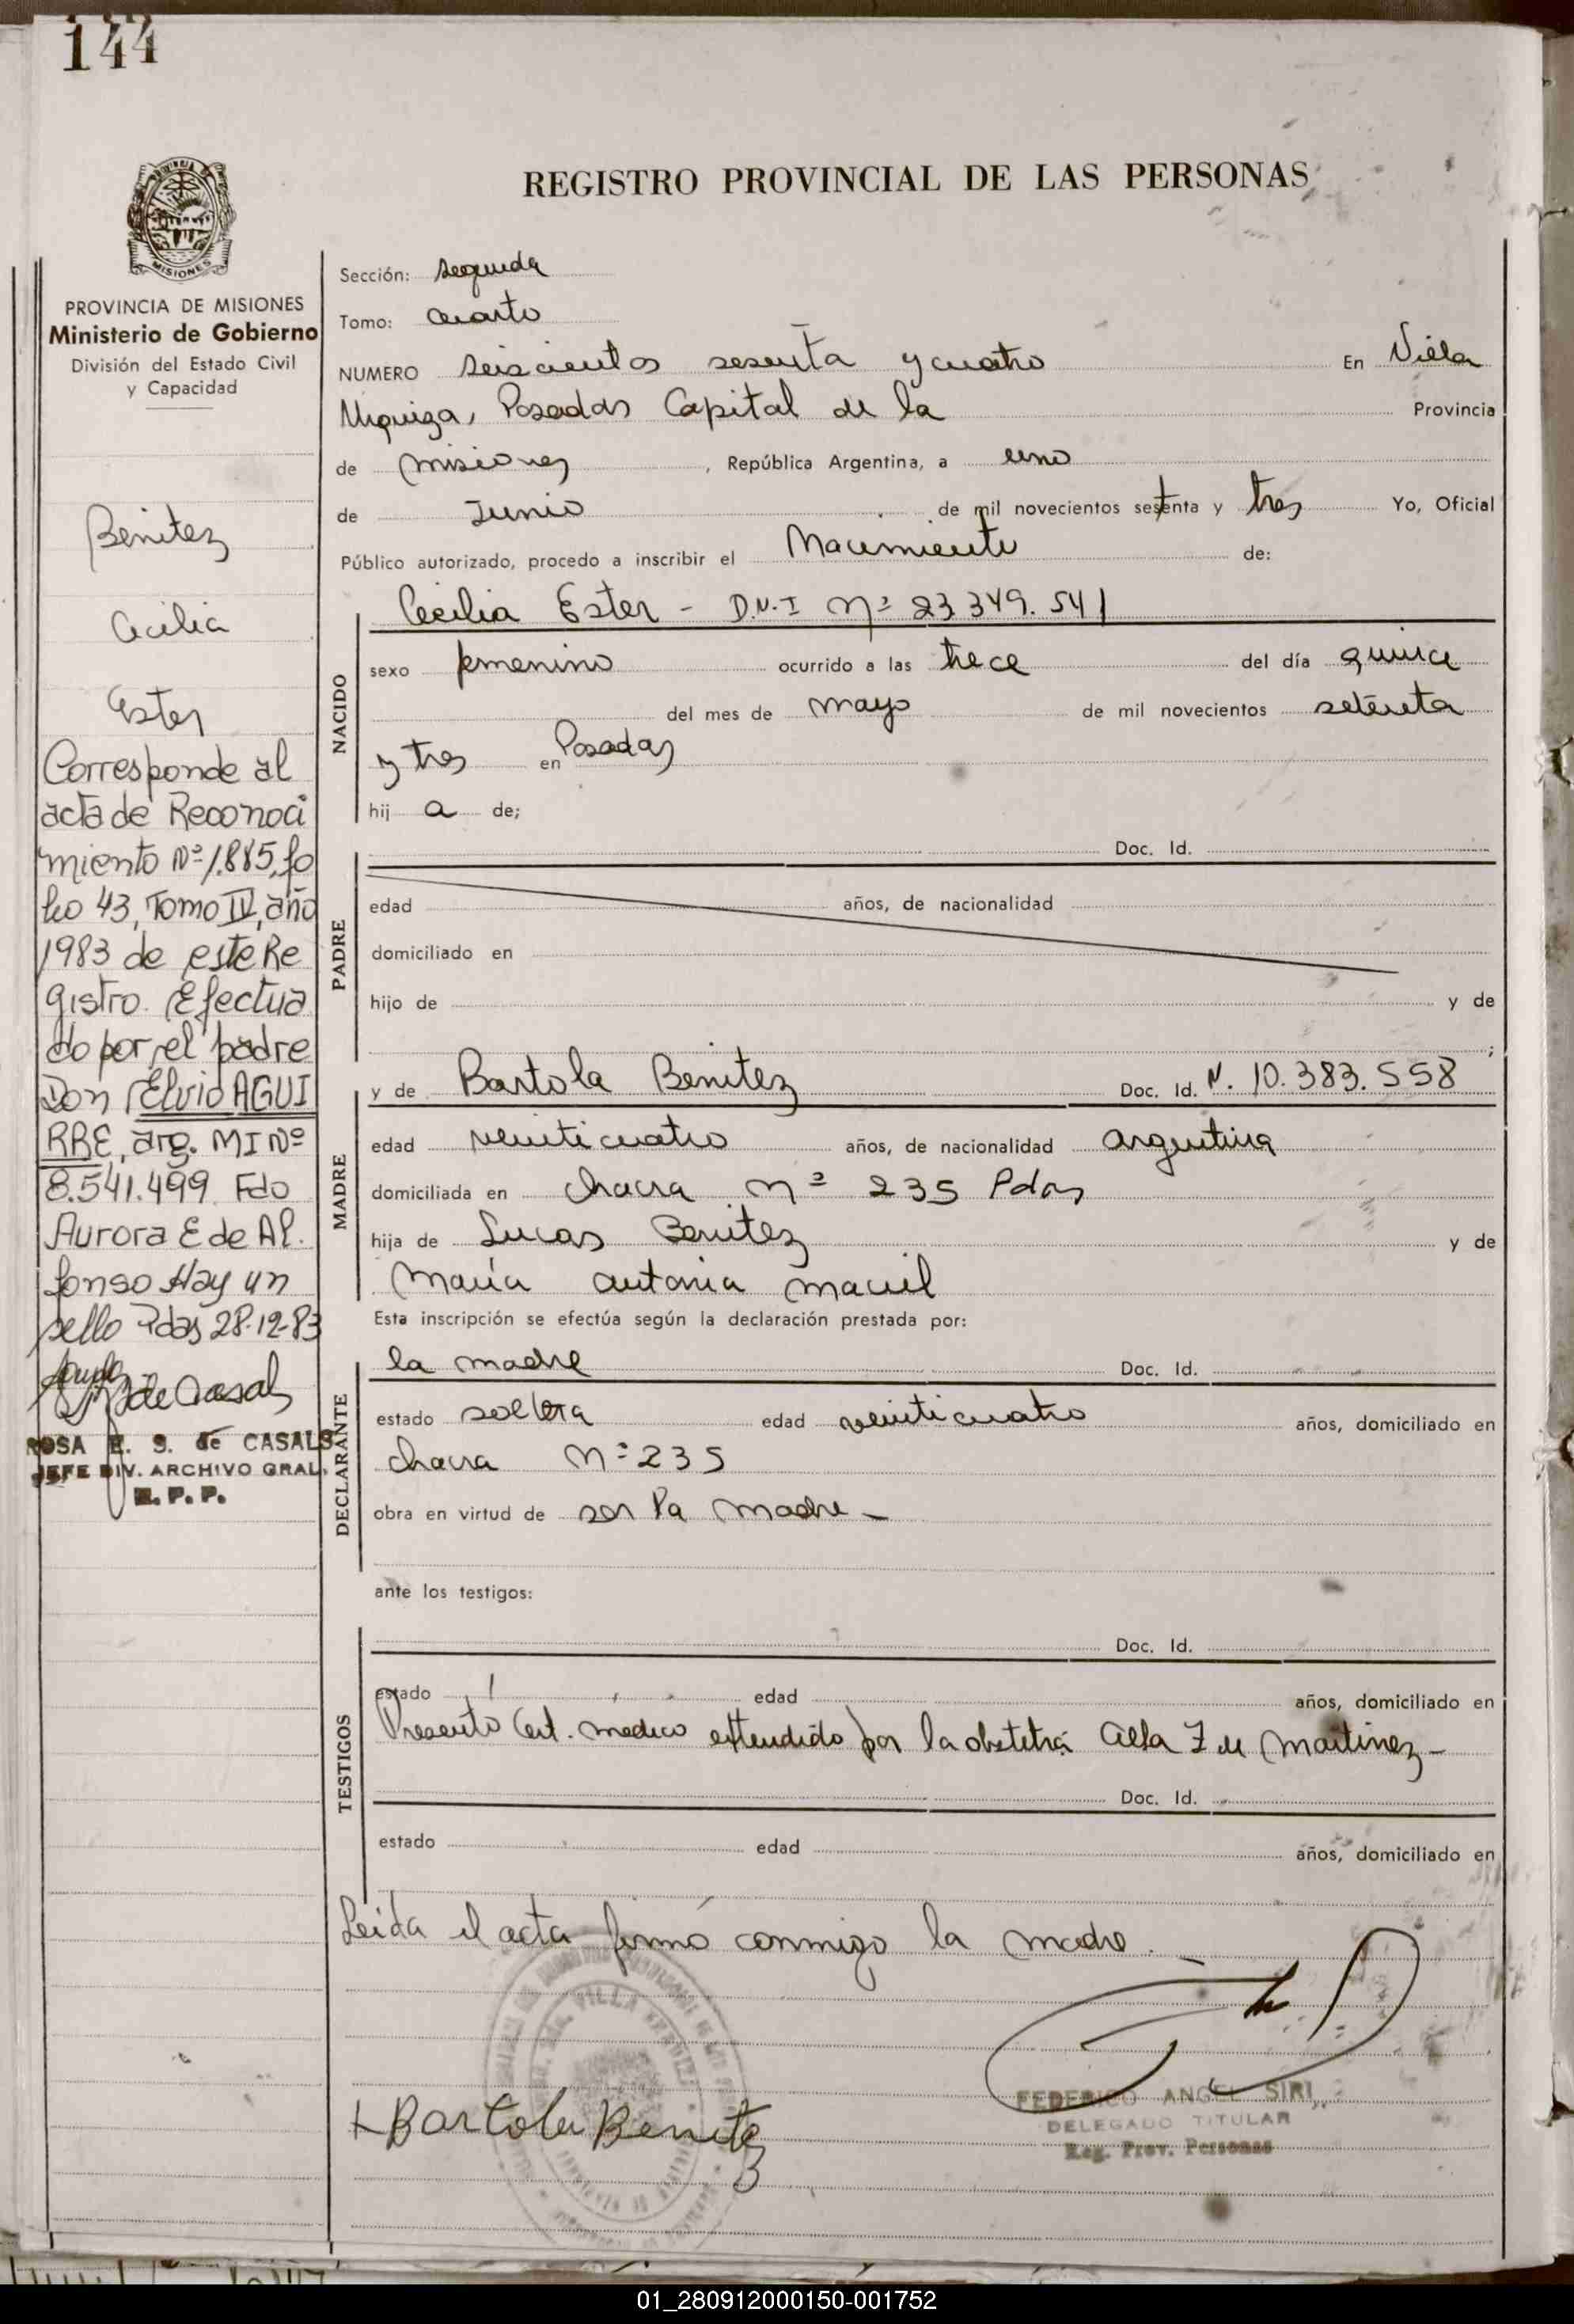 144
REGISTRO PROVINCIAL DE LAS PERSONAS
MISIONES
PROVINCIA DE MISIONES
Ministerio de Gobierno
División del Estado Civil
y Capacidad
Benitez
Cecilia
Ester
Corresponde al
acta de Reconoci
miento Nº 1.885, fo
lio 43, Tomo IV, año
1983 de este Re
gistro. Efectua
do por el padre
Don Elvio AGUI
RRE, arg. MI Nº
8.541.499 Fdo
Aurora E de Al.
fonso Hay un
sello Pdas 28-12-83
de Casals
ROSA E. S. de CASALS
JEFE DIV. ARCHIVO GRAL.
R. P. P.
Sección: segunda
Tomo: cuarto
NUMERO seiscientos sesenta y cuatro En Villa
Urquiza, Posadas Capital de la Provincia
de Misiones, República Argentina, a uno
de Junio de mil novecientos setenta y tres Yo, Oficial
Público autorizado, procedo a inscribir el Nacimiento de:
NACIDO
Cecilia Ester - D.N.I Nº 23.349.541
sexo femenino ocurrido a las trece del día quince
del mes de mayo de mil novecientos setenta
y tres en Posadas
hij a de;
PADRE
Doc. Id.
edad años, de nacionalidad
domiciliado en
hijo de y de
;
MADRE
y de Bartola Benitez Doc. Id. N. 10.383.558
edad veinticuatro años, de nacionalidad argentina
domiciliada en chacra Nº 235 Pdas
hija de Lucas Benitez y de
María Antonia Maciel
Esta inscripción se efectúa según la declaración prestada por:
DECLARANTE
la madre Doc. Id.
estado soltera edad veinticuatro años, domiciliado en
chacra Nº 235
obra en virtud de ser la madre -
ante los testigos:
TESTIGOS
Doc. Id.
estado edad años, domiciliado en
Presentó Cert. medico extendido por la obstetra Martinez -
Doc. Id.
estado edad años, domiciliado en
Leida el acta firmó conmigo la madre. -
VILLA URQUIZA
Bartola Benitez
FEDERICO ANGEL SIRI
DELEGADO TITULAR
Reg. Prov. Personas
01_280912000150-001752